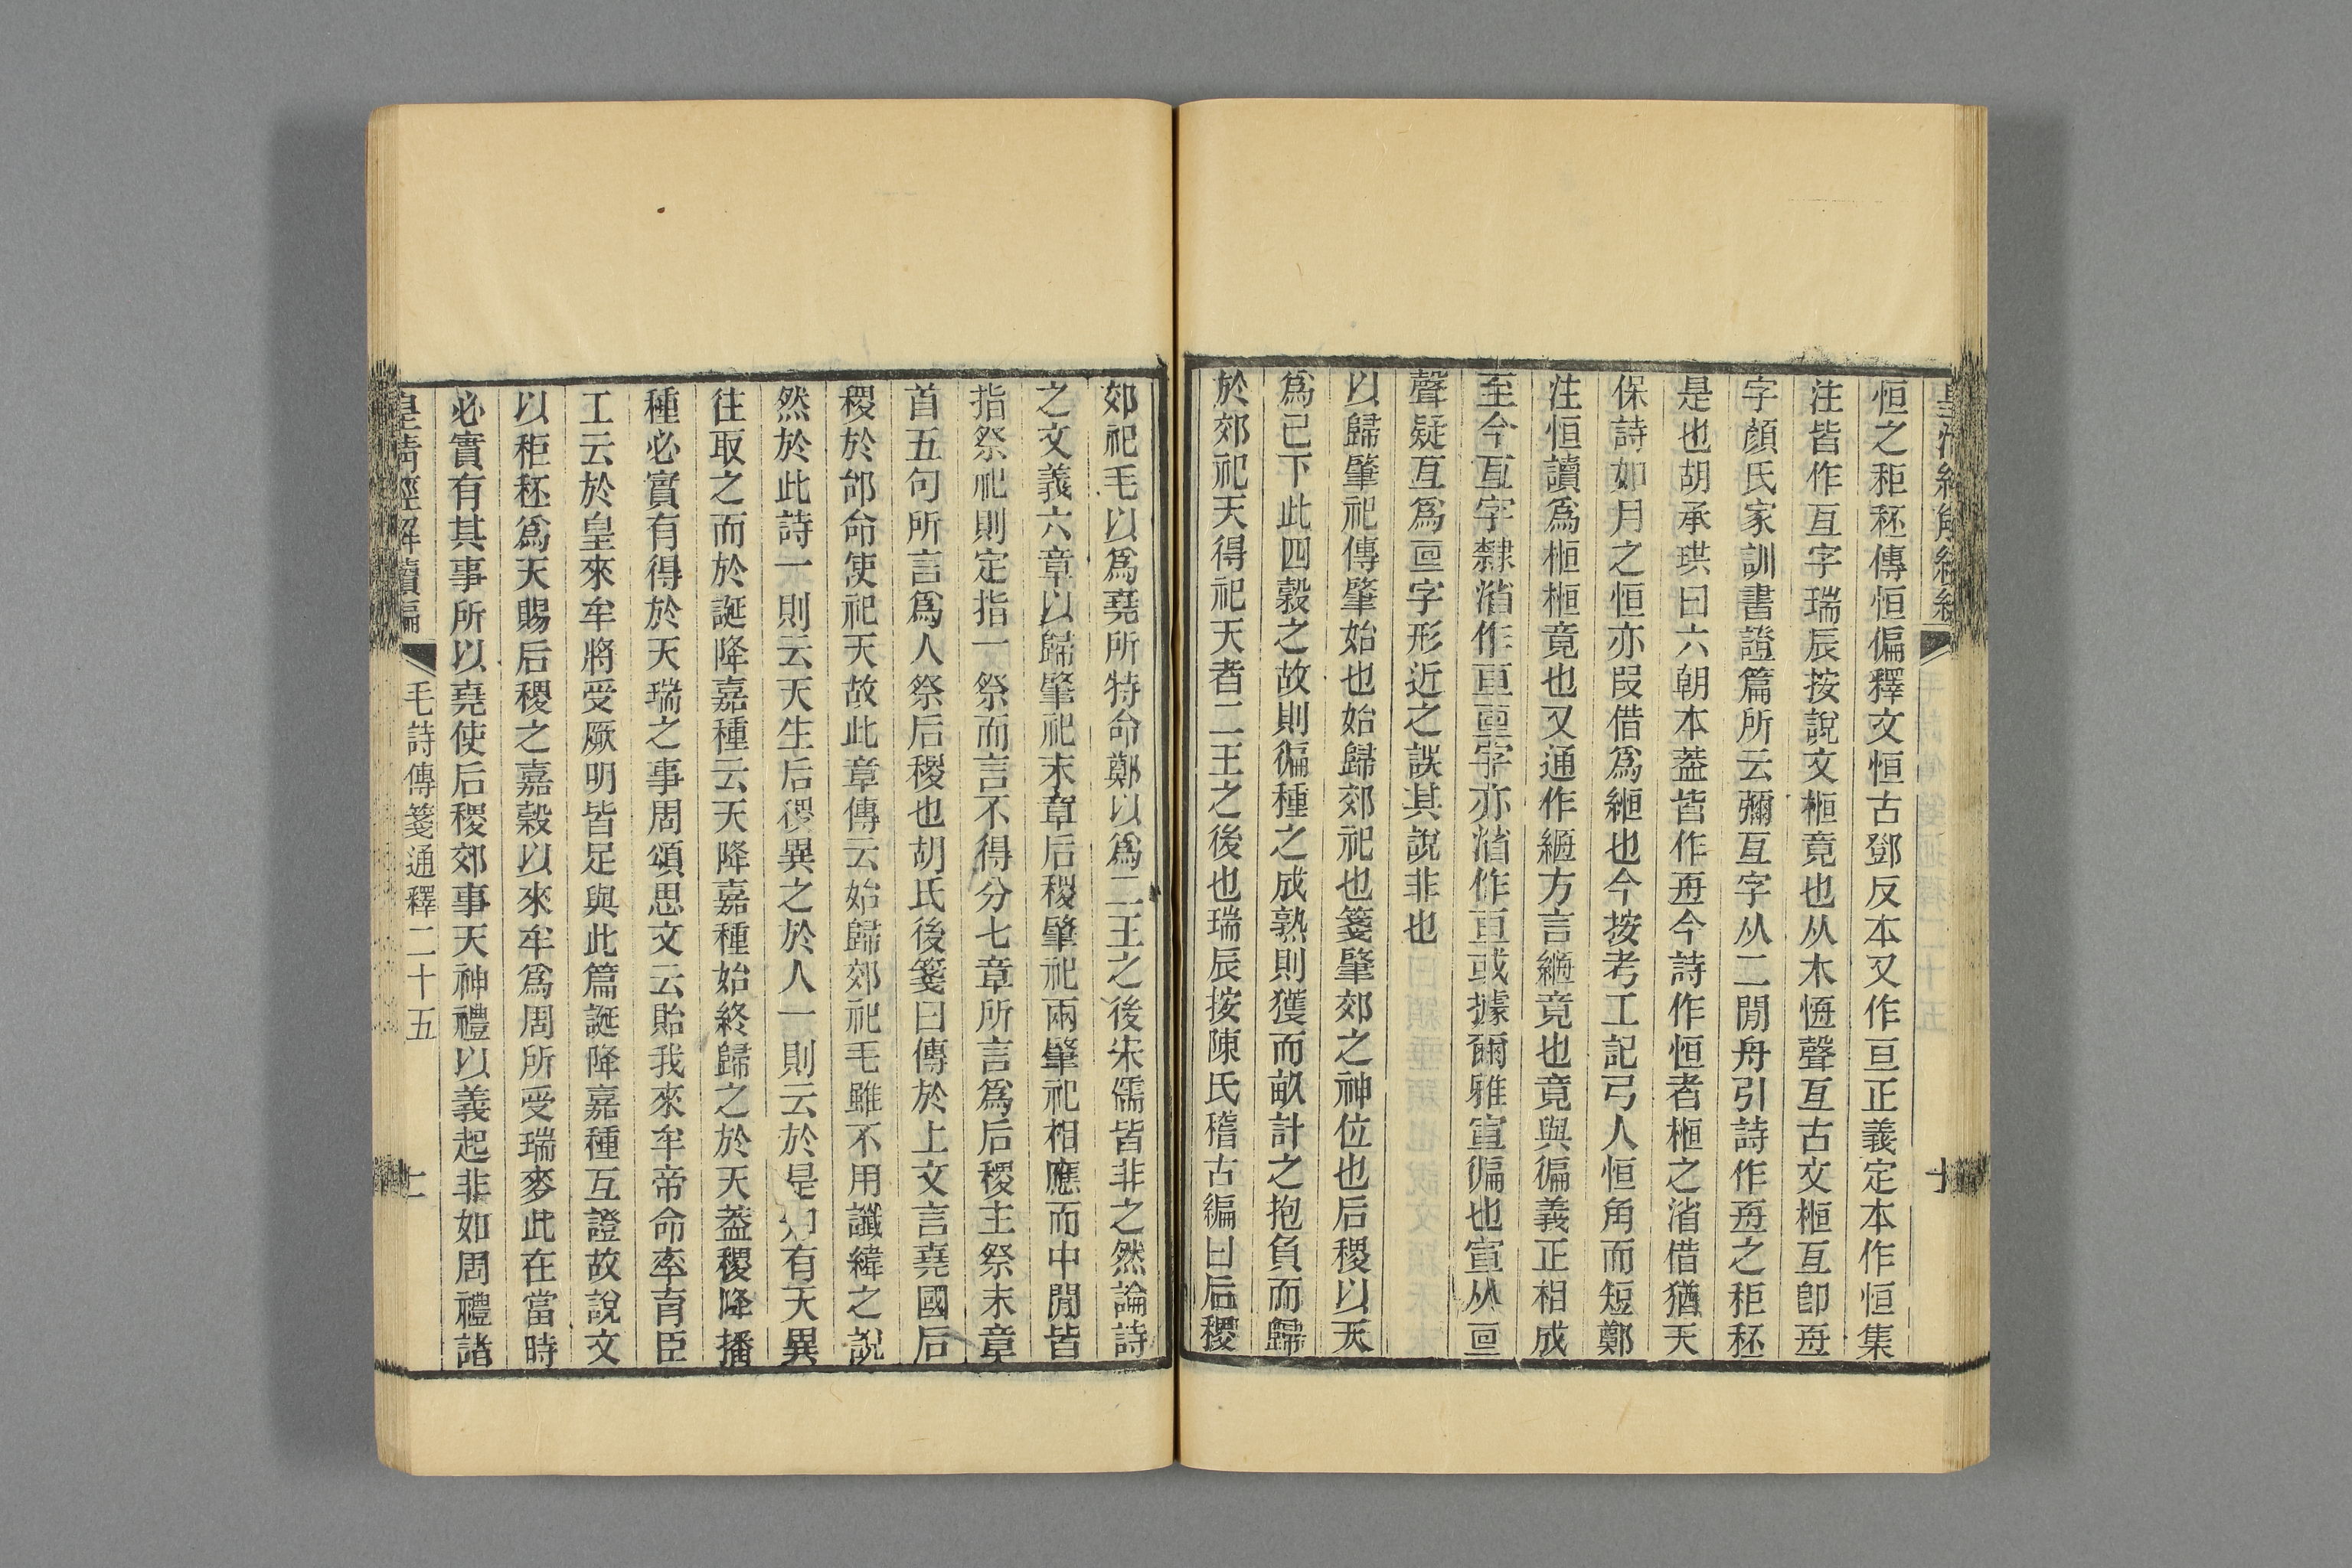 恒之秬秠傳恒徧釋文恒古鄧反本又作亘正義定本作恒集
注皆作亙字瑞辰按說文㮓竟也从木恆聲亙古文㮓亙卽舟
字顏氏家訓書證篇所云彌亙字从二閒舟引詩作亙之秬秠
是也胡承珙曰六朝本葢皆作亙今詩作恒者㮓之渻借猶天
保詩如月之恒亦叚借爲緪也今按考工記弓人恒角而短鄭
注恒讀爲㮓㮓竟也又通作緪方言緪竟也竟與徧義正相成
至今亙字隸渻作亘亘字亦渻作亘或據爾雅宣徧也宣从亘
聲疑亙爲亘字形近之誤其說非也
以歸肇祀傳肇始也始歸郊祀也箋肇郊之神位也后稷以天
爲已下此四穀之故則徧種之成熟則獲而畝計之抱負而歸
於郊祀天得祀天者二王之後也瑞辰按陳氏稽古編曰后稷
郊祀毛以爲堯所特命鄭以爲二王之後宋儒皆非之然論詩
之文義六章以歸肇祀末章后稷肇祀兩肇祀相應而中閒皆
指祭祀則定指一祭而言不得分七章所言爲后稷主祭末章
首五句所言爲人祭后稷也胡氏後箋曰傳於上文言堯國后
稷於邰命使祀天故此章傳云始歸郊祀毛雖不用讖緯之說
然於此詩一則云天生后稷異之於人一則云於是知有天異
往取之而於誕降嘉種云天降嘉種始終歸之於天葢稷降播
種必實有得於天瑞之事周頌思文云貽我來牟帝命率育臣
工云於皇來牟將受厥明皆足與此篇誕降嘉種互證故說文
以秬秠爲天賜后稷之嘉穀以來牟爲周所受瑞麥此在當時
必實有其事所以堯使后稷郊事天神禮以義起非如周禮諸
皇清經解續編
毛詩傳箋通釋二十五